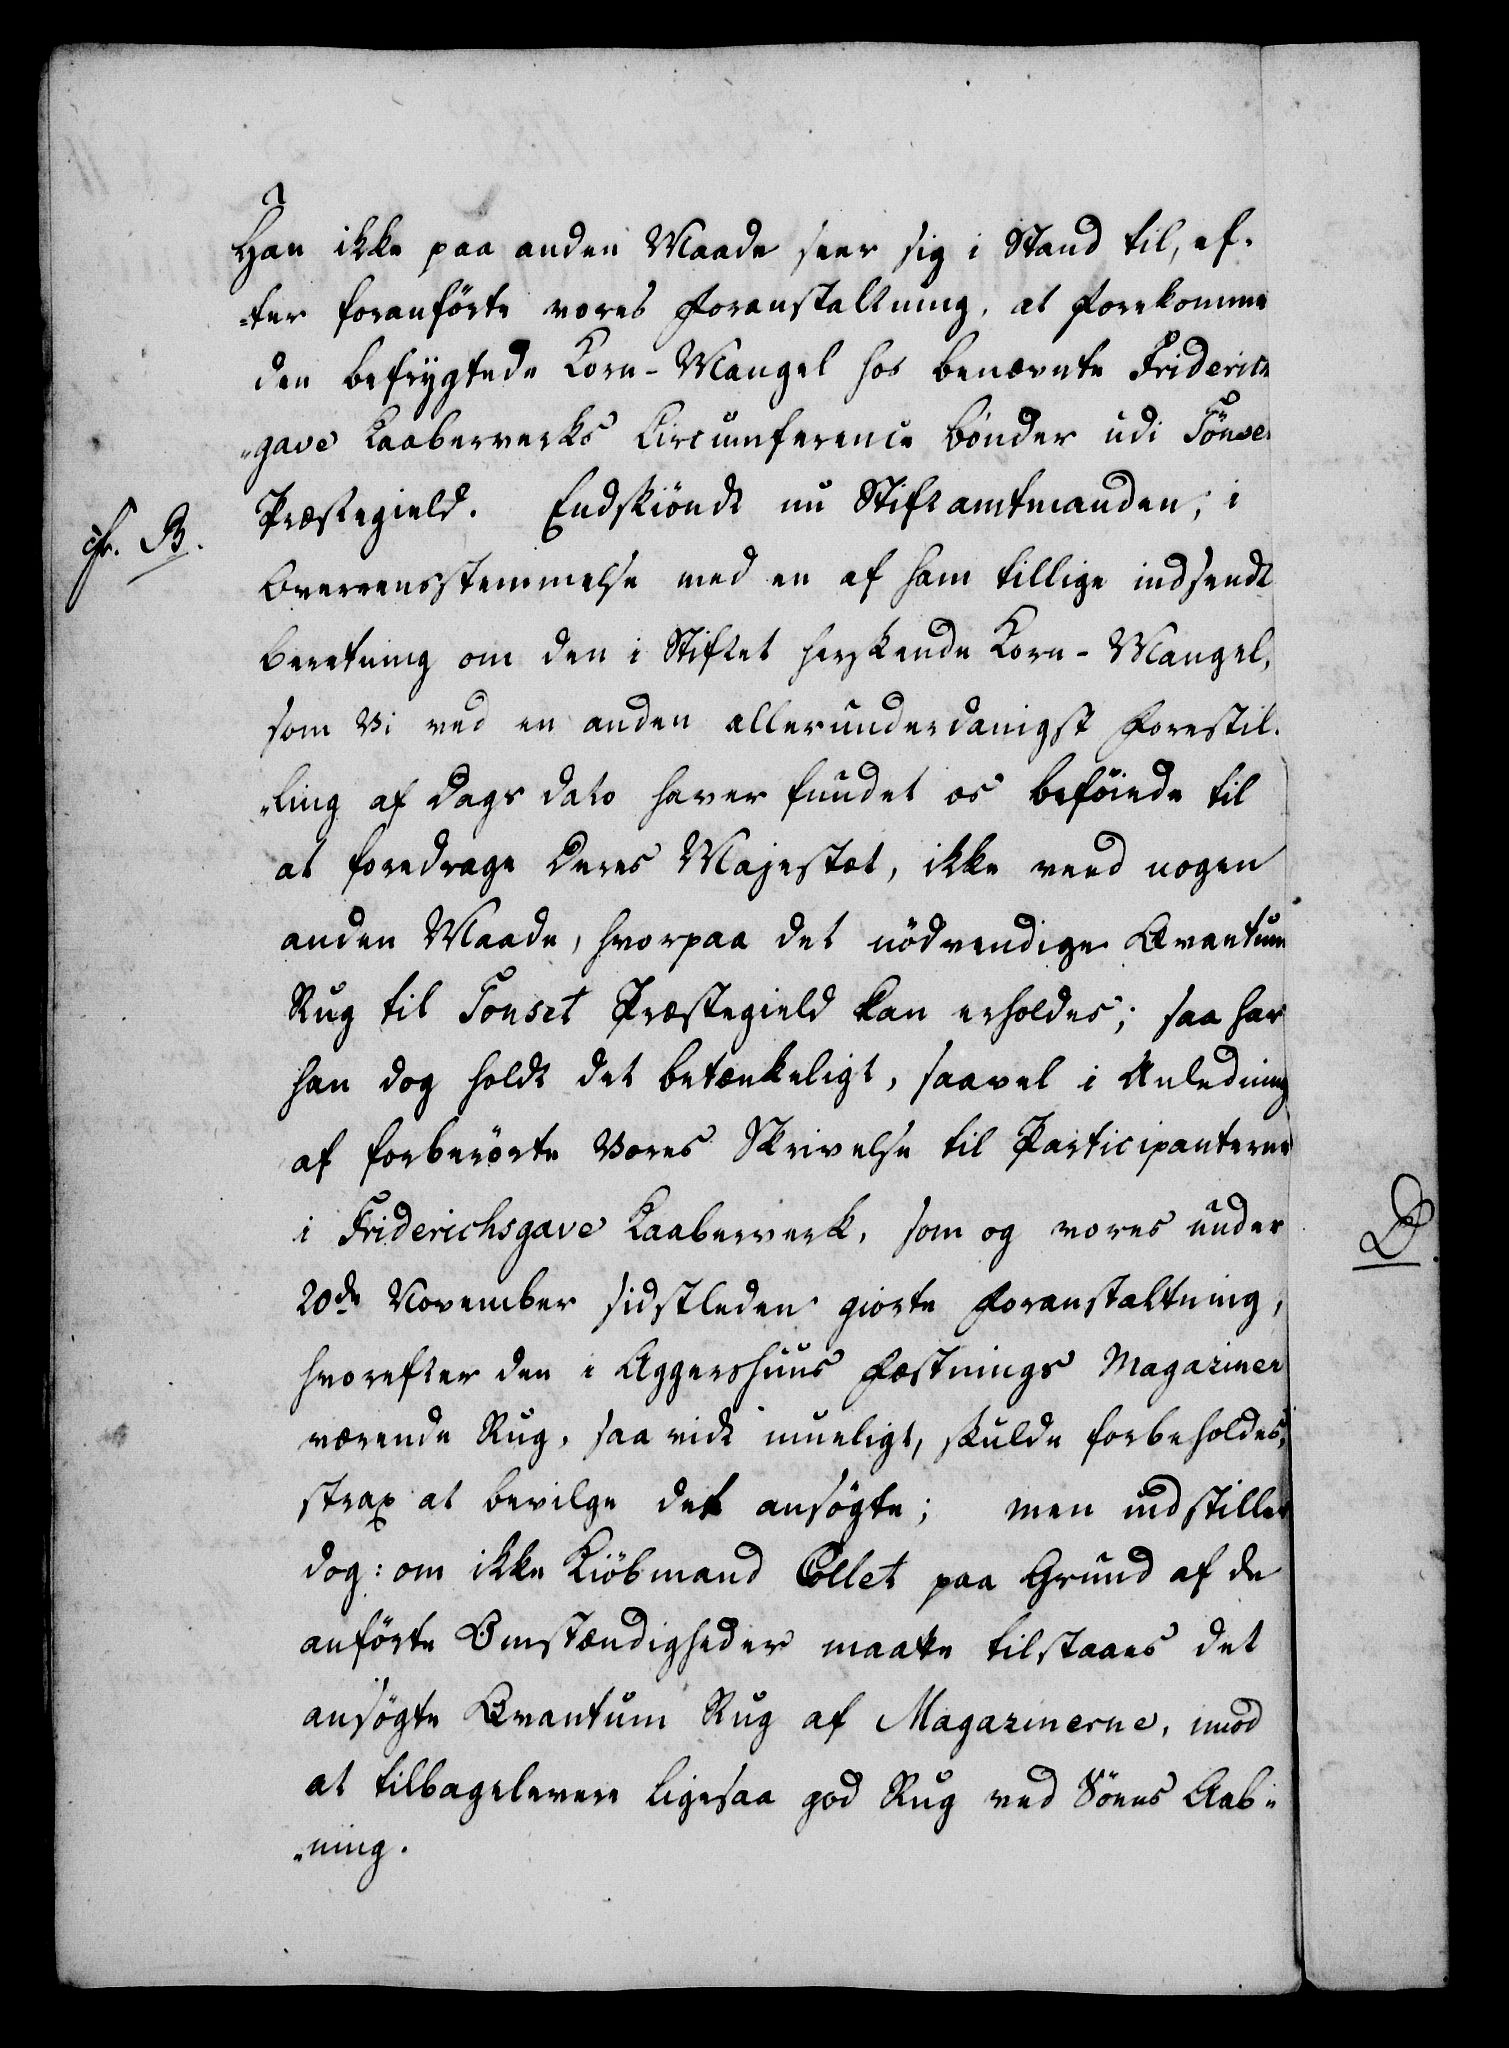 Han ikke paa anden Maade seer sig i Stand til, ef-
-ter foranførte vores Foranstaltning, at forekomme
den befrygtede Korn-Mangel hos benævnte Friderichs
-gave Kaaberverks Circumference bönder udi Tönset
Præstegield. Endskiöndt nu Stiftamtmanden, i
cfr. B.
Overeensstemmelse med en af ham tillige indsendt
beretning om den i Stiftet herskende Korn-Mangel,
som Vi ved en anden allerunderdanigst Forestil-
-ling af Dags Dato haver fundet os beföiede til
at foredrage Deres Majestæt, ikke veed nogen
anden Maade, hvorpaa det nödvendige Qvantum
Rug til Tonset Præstegield kan erholdes; saa har
han dog holdt det betænkeligt, saavel i Anledning
af forberörte Vores Skrivelse til Participanterne
i Friderichsgave Kaaberverk, som og vores under
20de November sidstleden giorte Foranstaltning,
hvorefter den i Aggershuus Fæstnings Magaziner
værende Rug, saa vidt mueligt, skulde forbeholdes,
strax at bevilge det ansögte; men indstiller
dog: om ikke Kiöbmand Collet paa Grund af de
anförte Omstændigheder maatte tilstaaes det
ansögte Qvantum Rug af Magazinerne, imod
at tilbagelevere ligesaa god Rug ved Söens Aab-
-ning.
D.